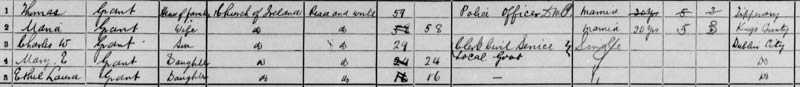 1 Thomas Grant Head of family Church of Ireland Read and write 59 Police Officer D.M.P. Married 30 yrs 5 3 Tipperary
2 Maria Grant Wife do do 58 58 Married 30 yrs 5 3 Kings County
3 Charles W. Grant Son do do 29 Clerk Civil Service Local Govt Single Dublin City
4 Mary E Grant Daughter do do 24 24 Do
5 Ethel Laura Grant Daughter do do 16 16 — Do